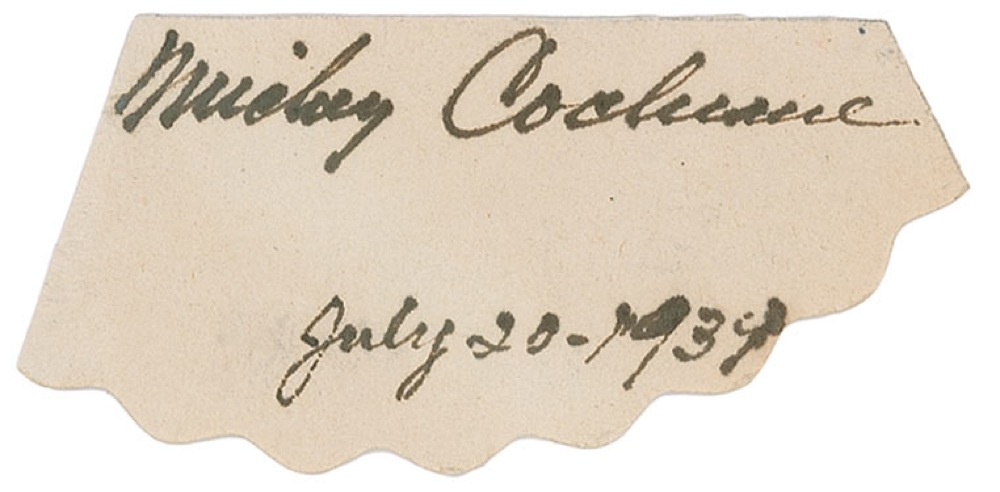 Mickey Cochrane
July 20-1934